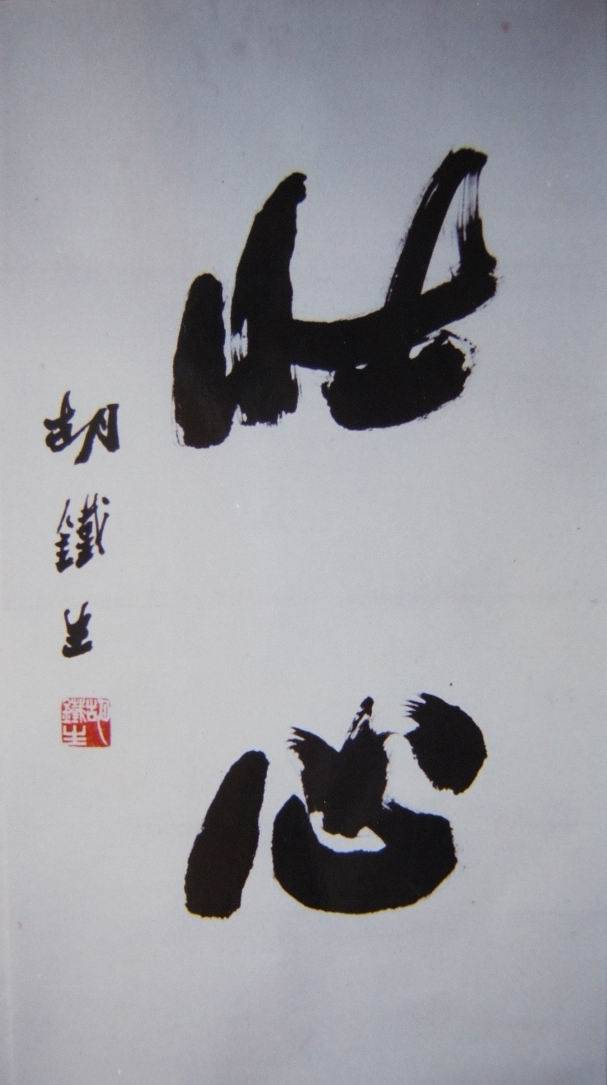 心
胡鐵生
胡鐵生